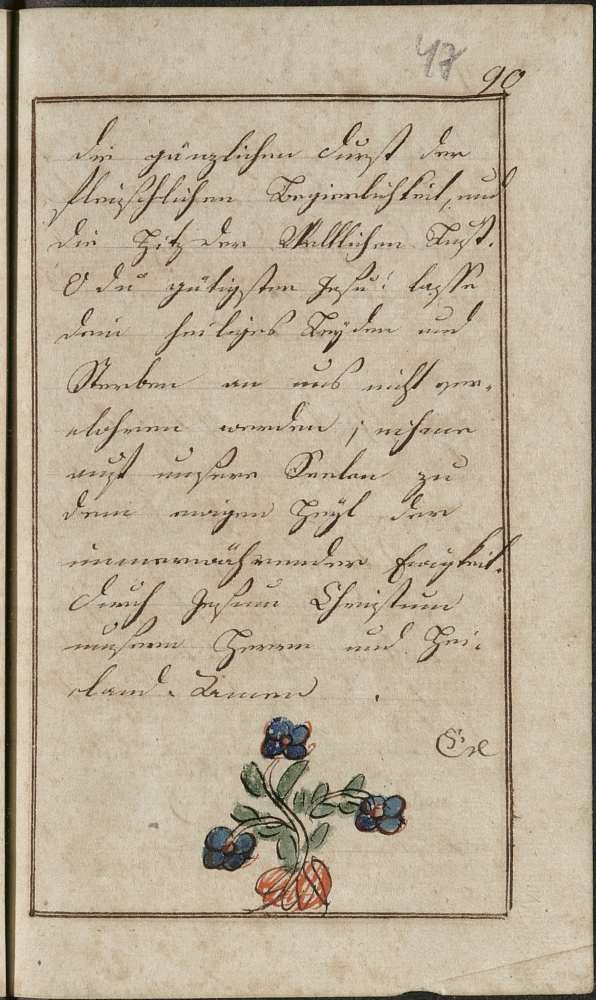 47
90
die gänzlichen Durst der
fleischlichen Begierlichkeit, und
die Hitz der Weltlichen Lust.
O du gütigster Jesu! lasse
dein heiliges Leyden und
Sterben an uns nicht ver-
lohren werden; nihme
auf unsere Seelen zu
dem ewigen Heyl der
immerwährender Ewigkeit.
Durch Jesum Christum
unsern Herrn und Hei-
land. Amen.